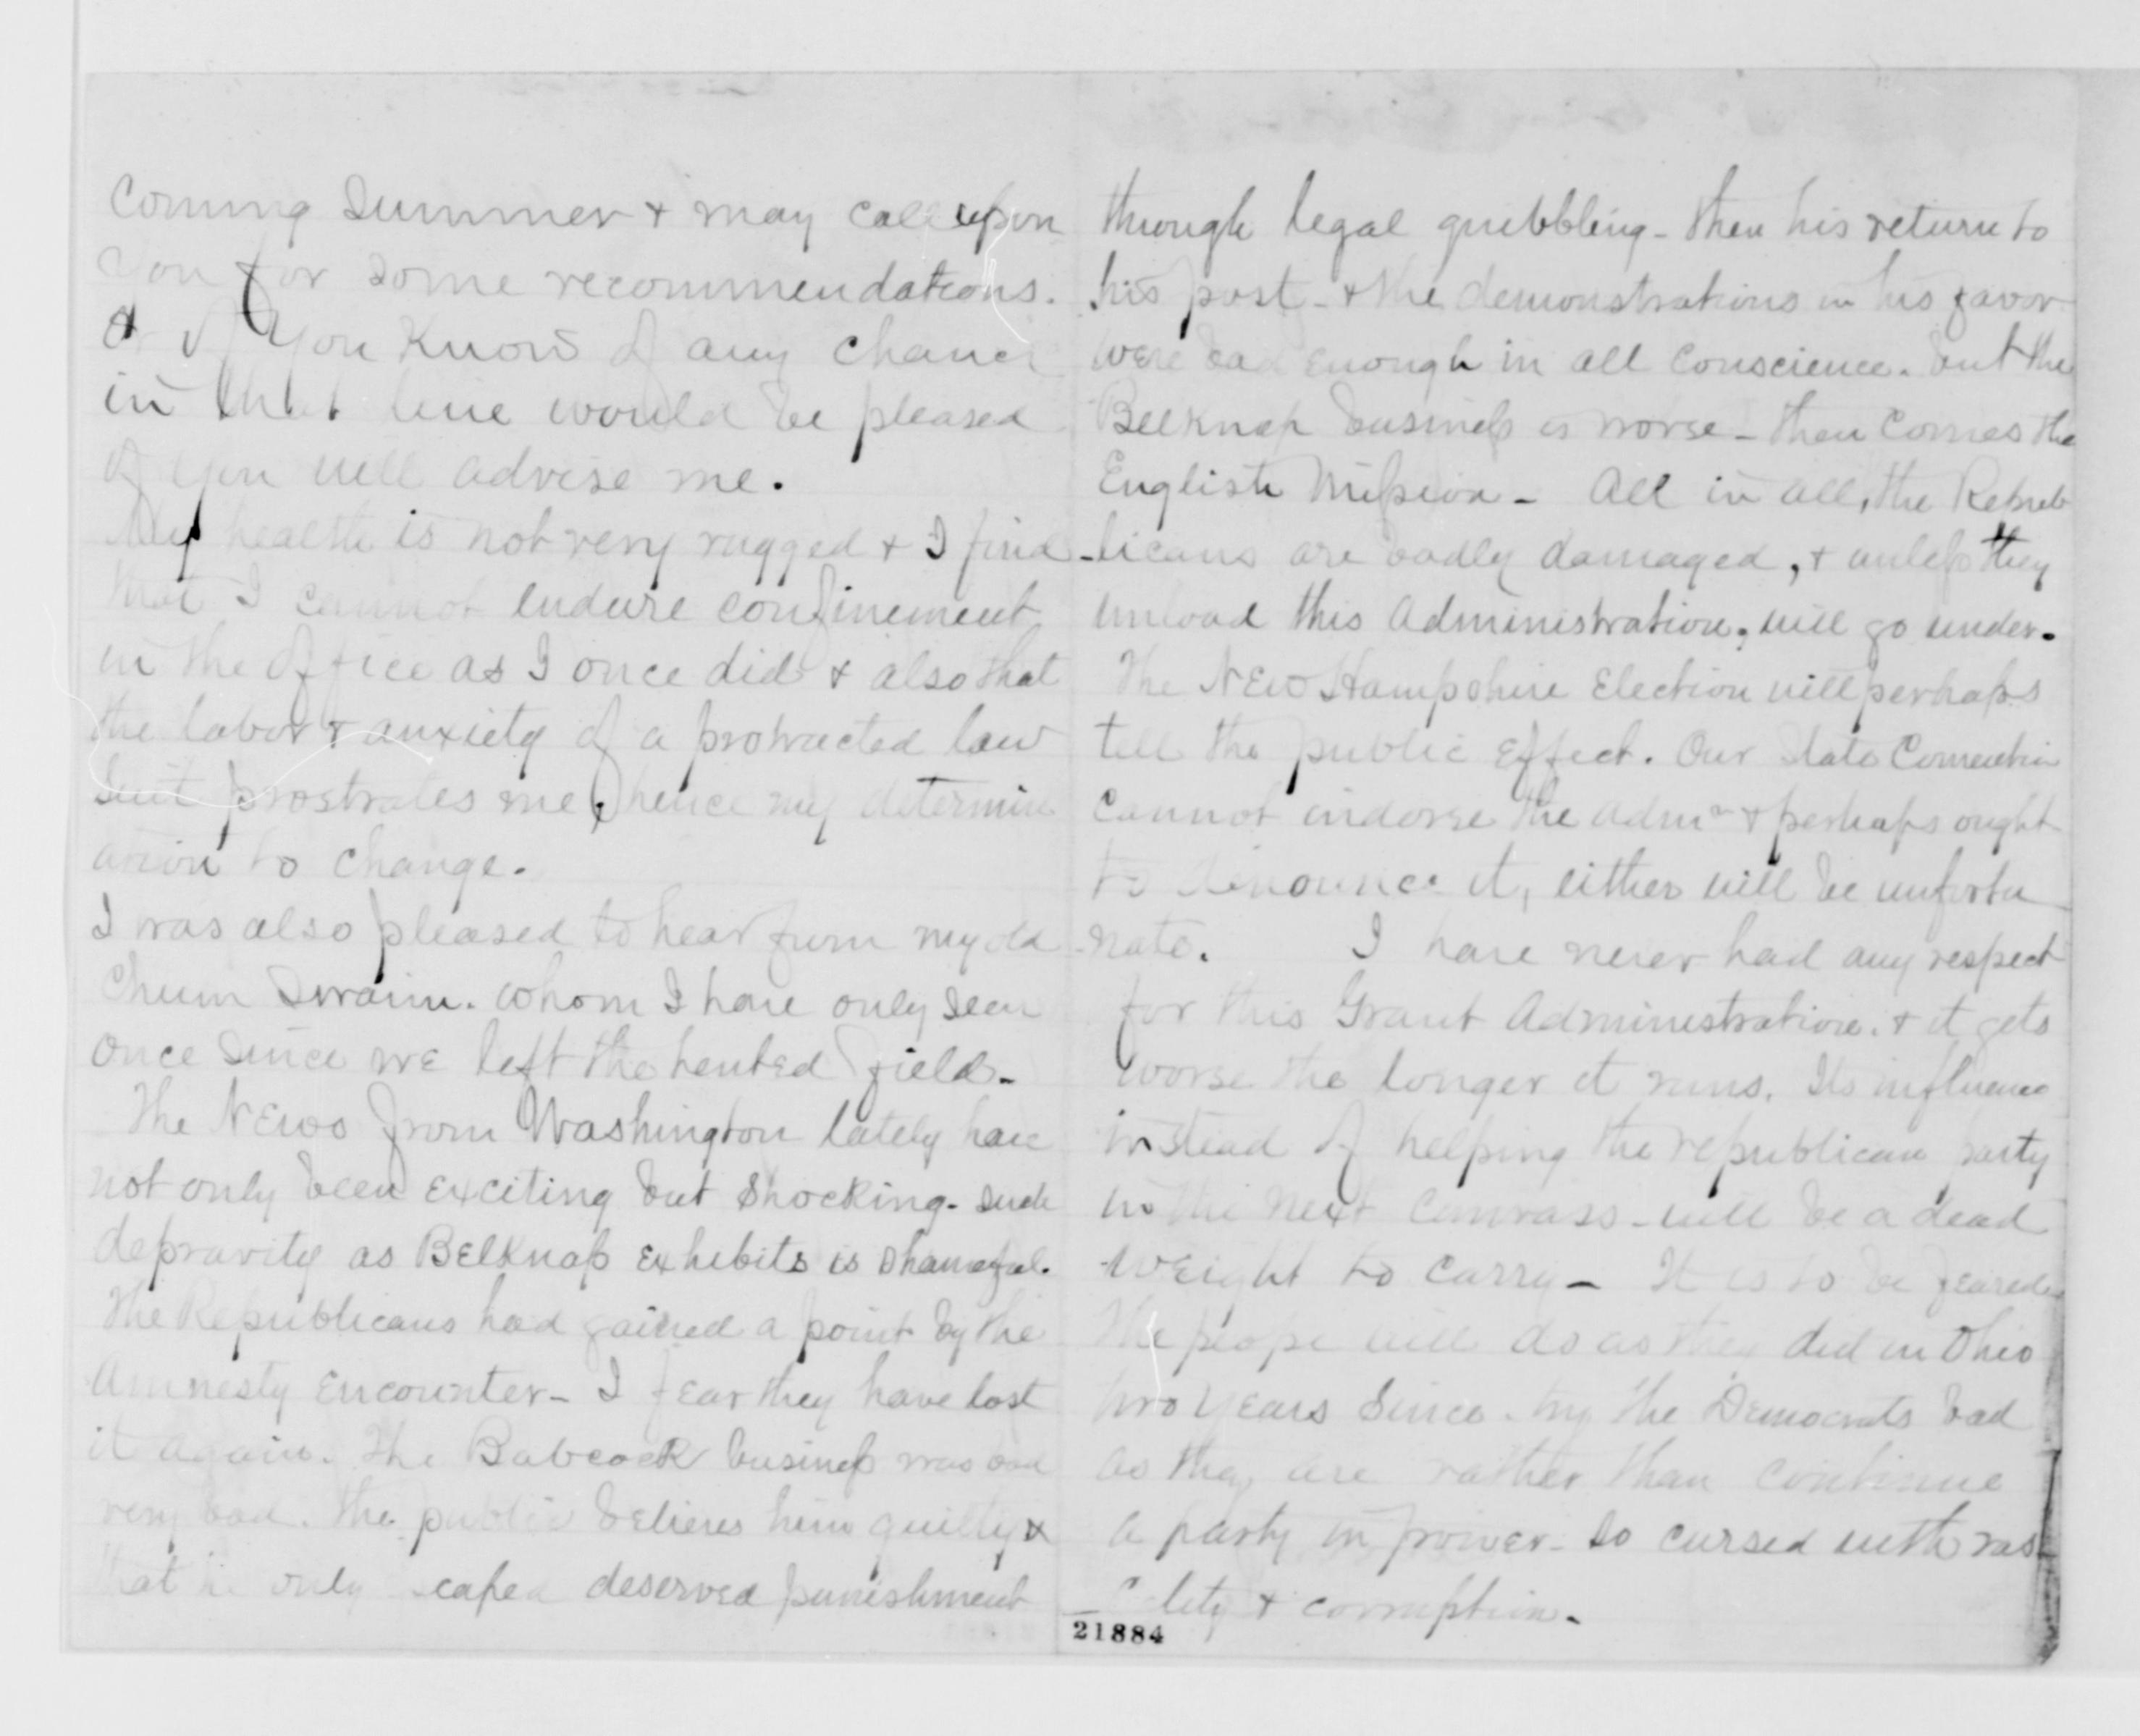 Coming Summer & may call upon
you for some recommendations.
& if you know of any chance
in that line would be pleased
if you will advise me.
My health is not very rugged & I find
that I cannot endure confinement
in the office as I once did & also that
the labor & anxiety of a protracted law
suit prostrates me, hence my determin
ation to change.
I was also pleased to hear from my old
Chum Swaim. whom I have only seen
once since we left the tented field-
The News from Washington lately have
not only been exciting but shocking- such
depravity as Belknap exhibits is shameful.
The Republicans had gained a point by the
Amnesty encounter- I fear they have lost
it again. The Babcock business was bad
very bad. the public believes him guilty &
that he only escaped deserved punishment
through legal quibbling- then his return to
his post- & the demonstrations in his favor
were bad enough in all conscience. but the
Belknap business is worse- then comes the
English Mission- All in all, the Repub
-licans are badly damaged, & unless they
unload this Administration, will go under.
The New Hampshire Election will perhaps
tell the public effect. Our State Convention
cannot indorse the Admn & perhaps ought
to denounce it, either will be unfortu
-nate. I have never had any respect
for this Grant Administration. & it gets
worse the longer it runs. Its influence
instead of helping the republican party
in the next canvass- will be a dead
weight to carry- It is to be feared
The people will do as they did in Ohio
two years since. try the Democrats bad
as they are rather than continue
a party in power- so cursed with ras
cality & corruption-
21884